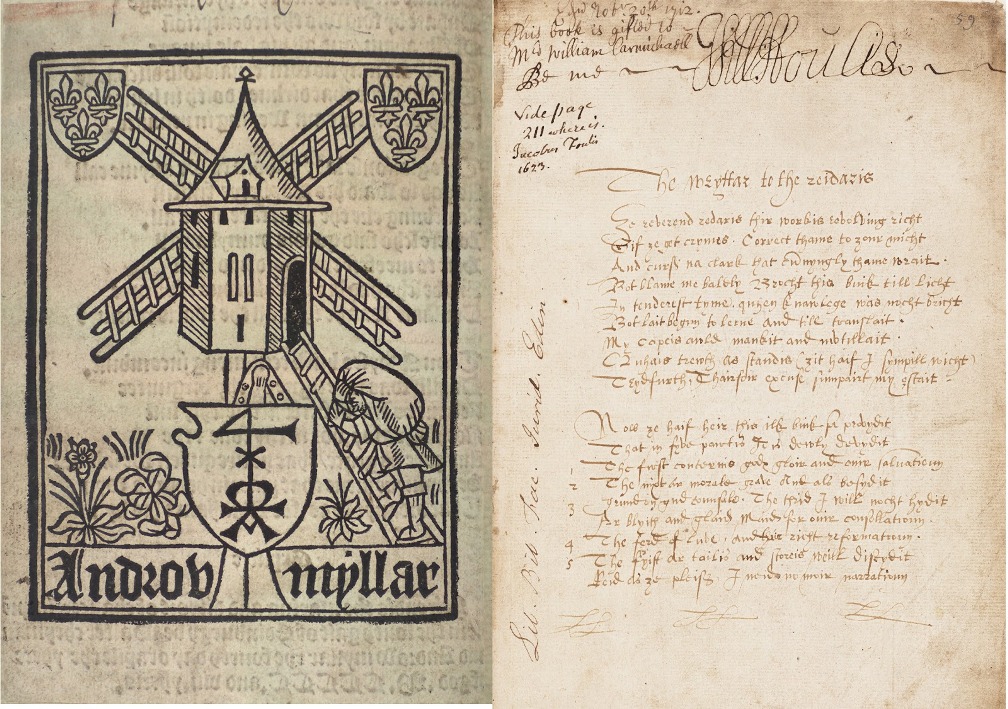 Androv myllar
Edr Nobr 20th 1712.
This book is gifted to
Mr William Carmichaell
Be me Will: ffoulis.
59
Vide page
211 where is.
Jacobus Foulis
1623.
The wryttar to the reidaris
Ȝe reverend redaris thir workis revolving richt
Gif ȝe get crymes. Correct thame to ȝour micht
And curss na clark that cunnyngly thame wrait.
Bot blame me baldly Brocht this buik till licht
In tenderest tyme, quhen knawlege was nocht bricht
Bot lait begun to lerne and till translait.
My copeis awld mankit and mvtillait
Quhais trewth as standis ȝit haif I sympill wicht
Tryd furth, Thairfoir excuse sumpart my estait
Now ȝe haif heir this ilk buik sa provydit
That in fyve pairtis It is dewly devydit
1 The first concernis godis gloir and our salvatioun
2 The nixt ar morale grave and als besyd it
3 Grund on gud counsale. The thrid I will nocht hyd it
Ar blyith and glaid maid for our consollatioun.
4 The ferd of luve, and thair richt reformatioun.
5 The fyift ar tailis and storeis weill discydit
Reid as ȝe pleiss, I neid no moir narratioun
Lib. Bib. Fac. Jurid. Edin